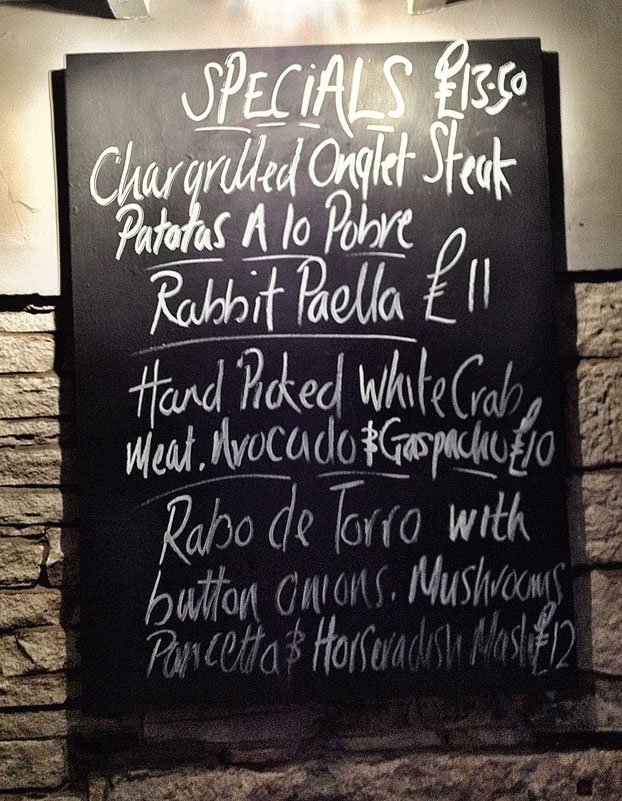 SPECIALS £13.50
Chargrilled Onglet Steak
Patatas A lo Pobre
Rabbit Paella £11
Hand Picked White Crab
Meat. Avocado & Gaspacho £10
Rabo de Torro with
button onions. Mushrooms
Pancetta & Horseradish Mash £12